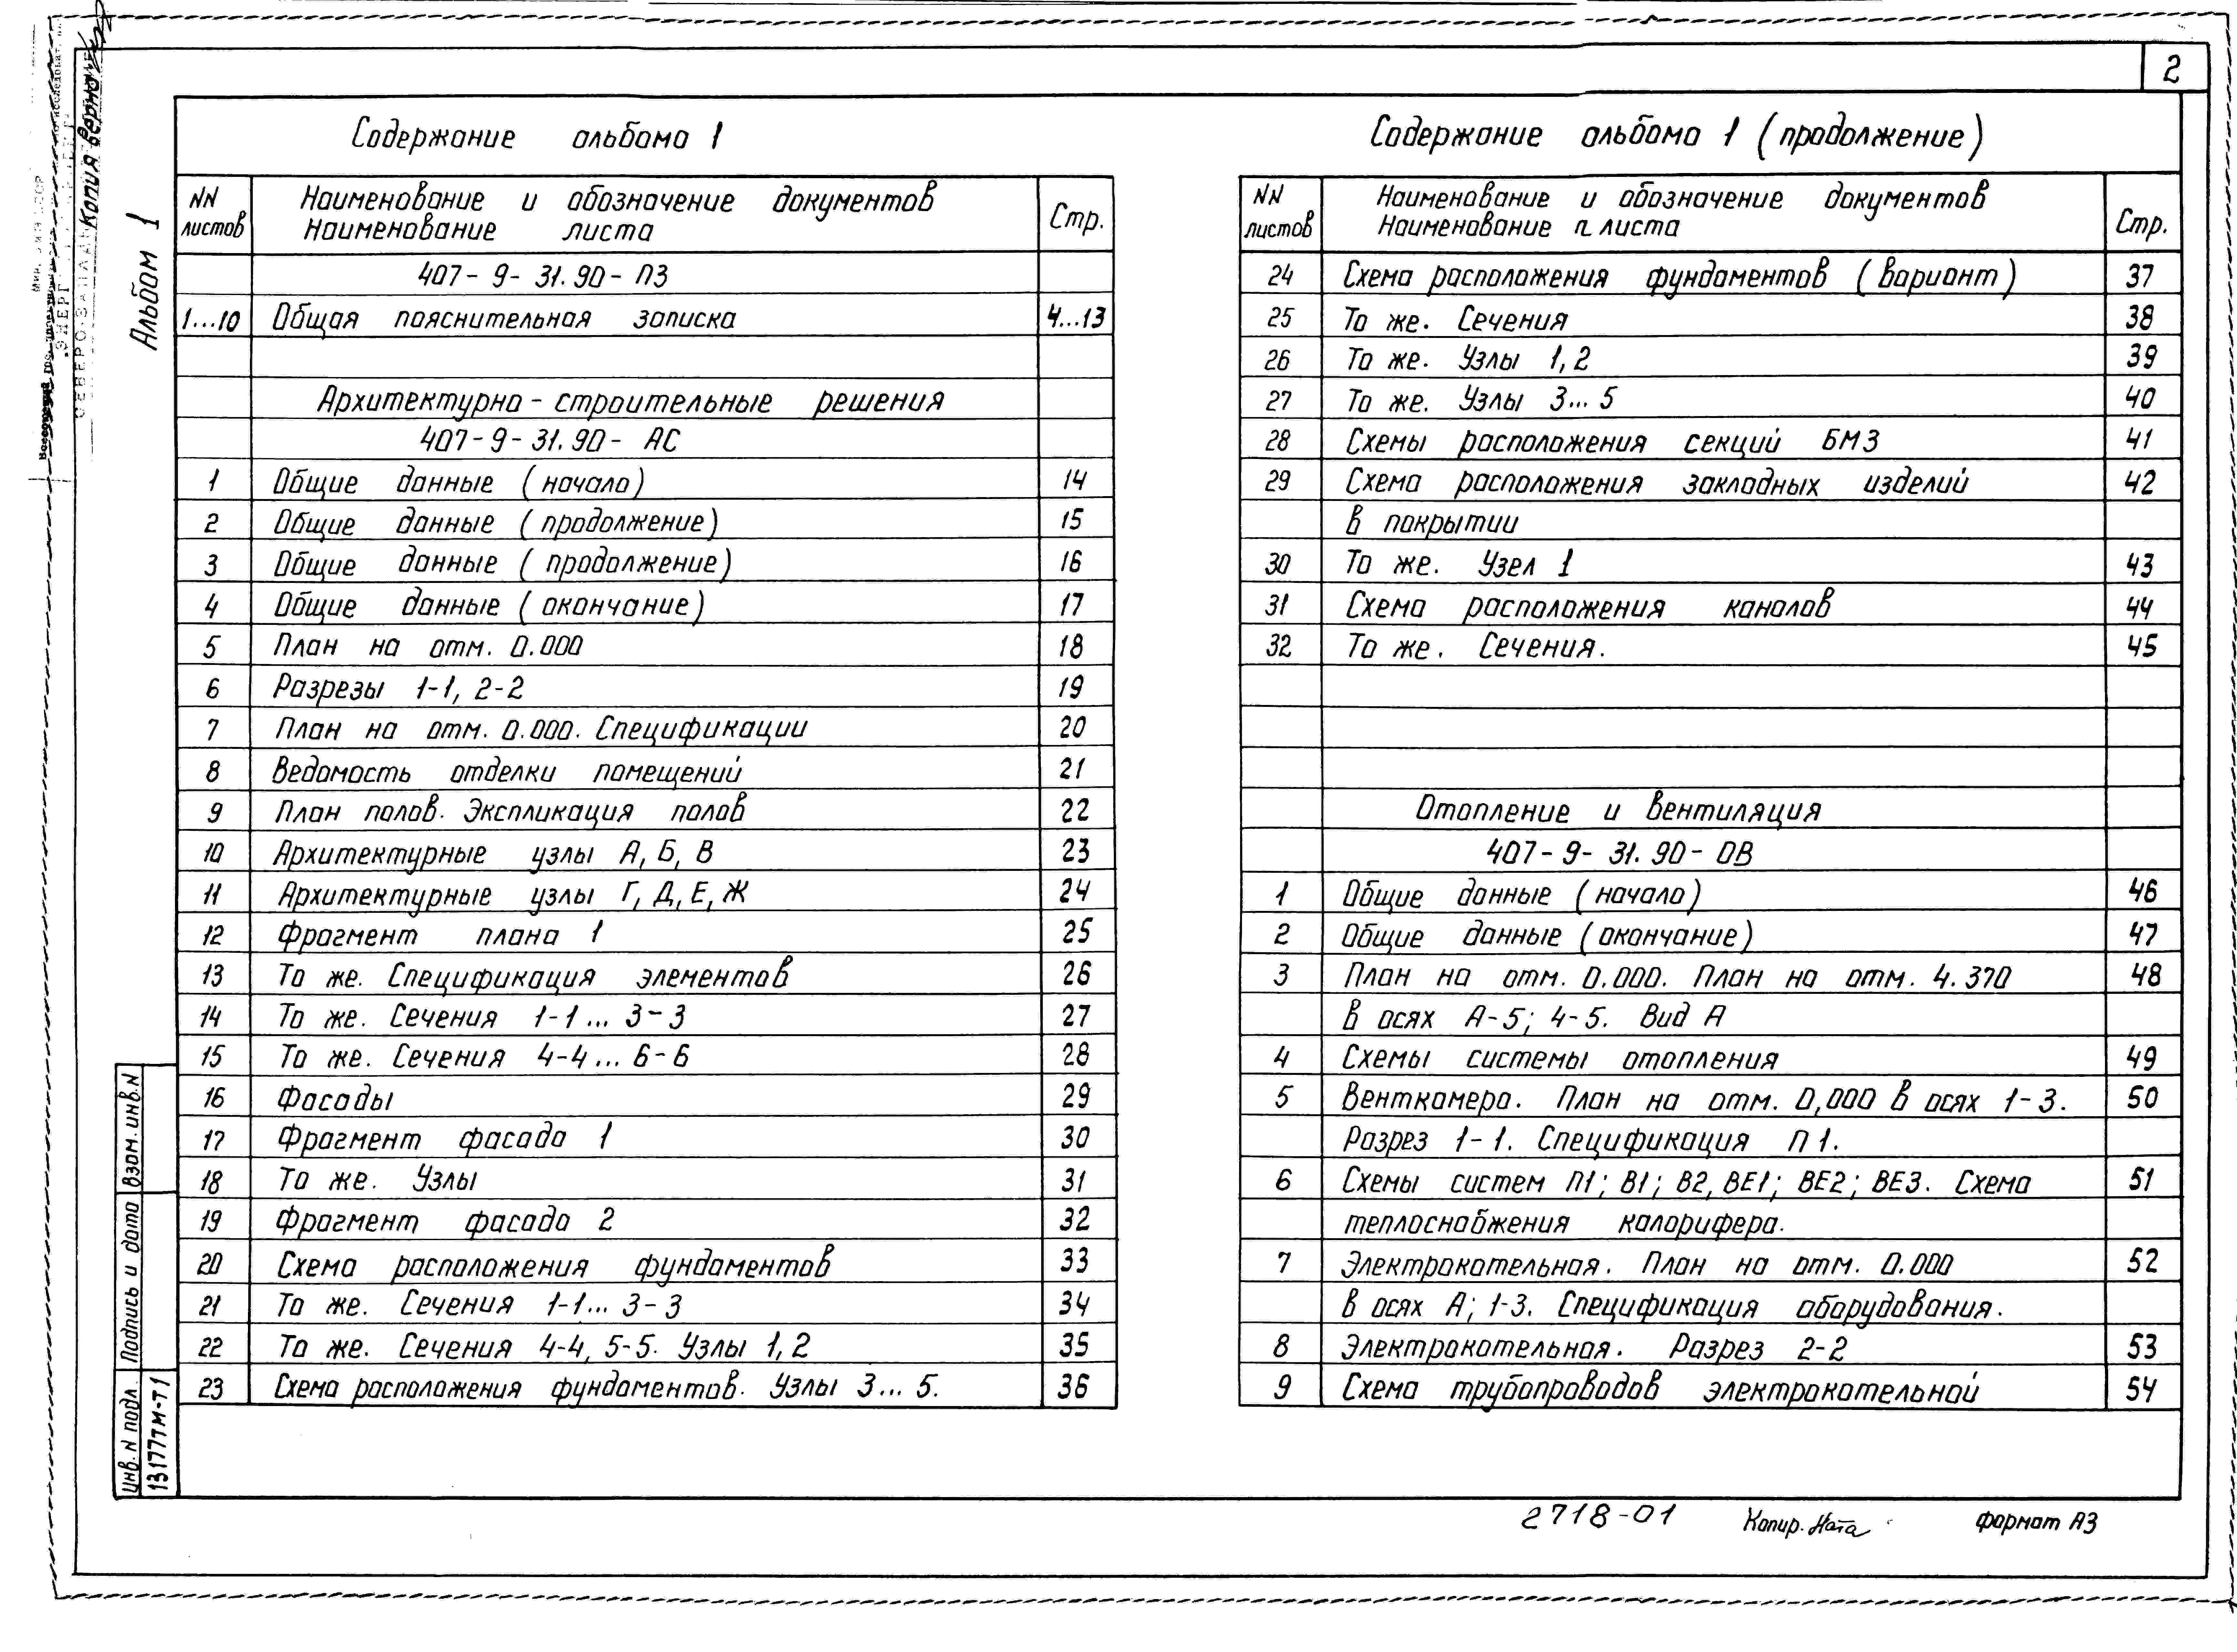 2
Копия верна
Альбом 1
Содержание альбома 1
NN листов
Наименование и обозначение документов
Наименование листа
Стр.
407-9-31.90-ПЗ
1...10 Общая пояснительная записка 4...13
Архитектурно-строительные решения
407-9-31.90-АС
1 Общие данные (начало) 14
2 Общие данные (продолжение) 15
3 Общие данные (продолжение) 16
4 Общие данные (окончание) 17
5 План на отм. 0.000 18
6 Разрезы 1-1, 2-2 19
7 План на отм. 0.000. Спецификации 20
8 Ведомость отделки помещений 21
9 План полов. Экспликация полов 22
10 Архитектурные узлы А, Б, В 23
11 Архитектурные узлы Г, Д, Е, Ж 24
12 Фрагмент плана 1 25
13 То же. Спецификация элементов 26
14 То же. Сечения 1-1... 3-3 27
15 То же. Сечения 4-4... 6-6 28
16 Фасады 29
17 Фрагмент фасада 1 30
18 То же. Узлы 31
19 Фрагмент фасада 2 32
20 Схема расположения фундаментов 33
21 То же. Сечения 1-1... 3-3 34
22 То же. Сечения 4-4, 5-5. Узлы 1, 2 35
23 Схема расположения фундаментов. Узлы 3... 5. 36
Содержание альбома 1 (продолжение)
NN листов
Наименование и обозначение документов
Наименование листа
Стр.
24 Схема расположения фундаментов (вариант) 37
25 То же. Сечения 38
26 То же. Узлы 1, 2 39
27 То же. Узлы 3... 5 40
28 Схемы расположения секций БМЗ 41
29 Схема расположения закладных изделий 42
в покрытии
30 То же. Узел 1 43
31 Схема расположения каналов 44
32 То же. Сечения. 45
Отопление и вентиляция
407-9-31.90-ОВ
1 Общие данные (начало) 46
2 Общие данные (окончание) 47
3 План на отм. 0.000. План на отм. 4.370 48
в осях А-5; 4-5. Вид А
4 Схемы системы отопления 49
5 Венткамера. План на отм. 0,000 в осях 1-3. 50
Разрез 1-1. Спецификация П1.
6 Схемы систем П1; В1; В2, ВЕ1; ВЕ2; ВЕ3. Схема 51
теплоснабжения калорифера.
7 Электрокотельная. План на отм. 0.000 52
в осях А; 1-3. Спецификация оборудования.
8 Электрокотельная. Разрез 2-2 53
9 Схема трубопроводов электрокотельной 54
Взам. инв. N
Подпись и дата
Инв. N подл.
13177тм-т1
2718-01 Копир. Ната формат А3